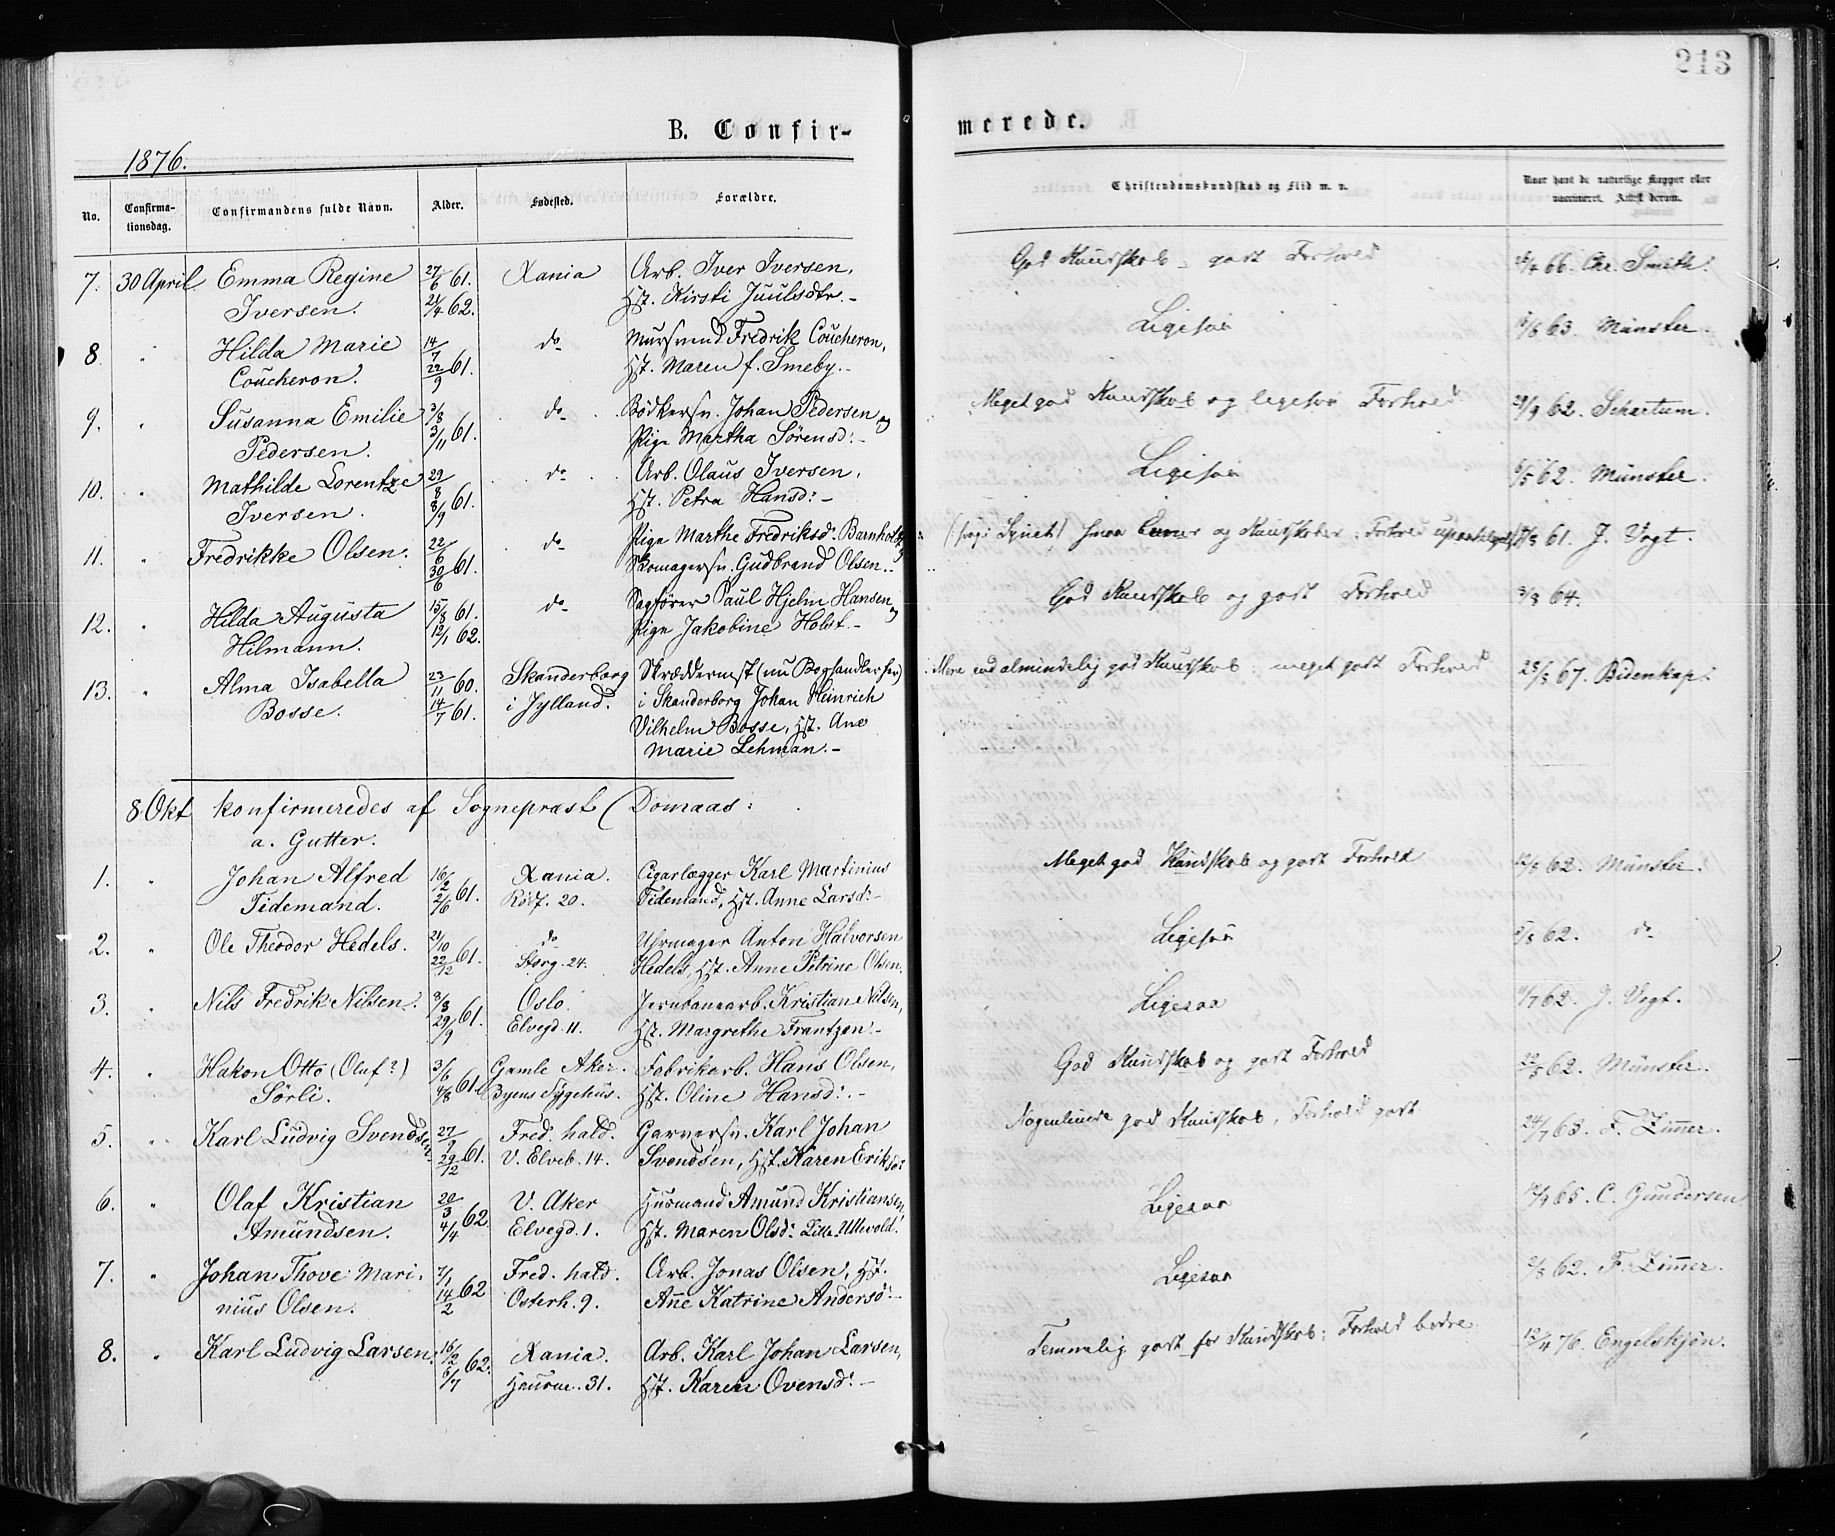 213
B. Confir-
merede.
1876.
No. Confirma-tionsdag. Confirmandens fulde Navn. Alder. Fødested. Forældre. Christendomskundskab og Flid m. v. Naar havt de naturlige Kopper eller vaccineret. Attest derom.
7. 30 April Emma Regine 27/6 61. Xania Arb. Iver Iversen, God Kundskab, godt Forhold 66. Chr. Smith.
Iversen. 21/4 62. Hst. Kirsti Juulsdtr.-
8. " Hilda Marie 14/7 do Mursvend Fredrik Coucheron, Ligesaa /8 63. Münster.
Coucheron. 22/9 61. Hst. Maren f. Smeby.-
9. " Susanna Emilie 3/8 do Bödkersv. Johan Pedersen og Meget god Kundskab og ligesaa Forhold 29/9 62. Schartum.
Pedersen. 3/11 61. Pige Martha Sørensd:-
10. " Mathilde Lorentze 29/8 do Arb. Olaus Iversen, Ligesaa 6/5 62. Münster.
Iversen. 8/9 61. Hst. Petra Hansd:-
11. " Fredrikke Olsen. 22/6 do Pige Marthe Fredriksd. Barnholt og smaa Evner og Kundskaber; Forhold /8 61. J. Vogt.
30/6 61. Skomagersv. Gudbrand Olsen.-
12. " Hilda Augusta 15/8 61. do Sagfører Paul Hjelm Hansen og God Kundskab og godt Forhold 3/8 64.
Hilmann. 12/1 62. Pige Jakobine Holst.-
13. " Alma Isabella 23/11 60. Skanderborg Skræddermst (nu Boghandler her) Mere end almindelig god Kundskab, meget godt Forhold 25/5 67. Bidenkap.
Bosse. 14/7 61. i Jylland. i Skanderborg Johan Heinrich
Vilhelm Bosse, Hst. Ane
Marie Lehman.-
8 Okt konfirmeredes af Sogneprest Domaas:
a. Gutter.
1. " Johan Alfred 16/2 Xania. Cigarlægger Karl Martinius Meget god Kundskab og godt Forhold 12/8 62. Münster.
Tidemand. 2/6 61. Rödf. 20. Tidemand, Hst. Anne Larsd:-
2. " Ole Theodor Hedels. 21/10 do Uhrmager Anton Halvorsen Ligesaa 5/8 62. do
22/12 61. Storg. 24. Hedels, Hst. Anne Petrine Olsen.
3. " Nils Fredrik Nilsen. 8/8 Oslo Jernbanearb. Kristian Nilsen, Ligesaa /7 62. J. Vogt.
29/9 61. Elvegd. 11. Hst. Margrethe Frantzen.-
4. " Hakon Otto (Oluf?) 3/6 Gamle Aker. Fabrikarb. Hans Olsen, God Kundskab og godt Forhold 22/5 62. Münster.
Sörli. 4/8 61. Byens Sygehus. Hst. Oline Hansd:.-
5. " Karl Ludvig Svendsen. 27/9 Fred. hald. Garversv. Karl Johan Nogenlunde god Kundskab, Forhold godt 24/7 63. F. Zimer.
29/12 61. V. Elveb. 14. Svendsen, Hst. Karen Eriksd:
6. " Olaf Kristian 20/3 V. Aker Husmand Amund Kristiansen, Ligesaa 65. C. Gundersen
Amundsen. 4/4 62. Elvegd. 1. Hst. Maren Olsd: Lille Ullevold.
7. " Johan Thove Mari- 7/1 Fred. hald. Arb. Jonas Olsen, Hst. Ligesaa /8 62. F. Zimer.
nius Olsen. 14/2 62 Osterh. 9. Añe Katrine Andersd:-
8. " Karl Ludvig Larsen. 16/2 Xania. Arb. Karl Johan Larsen, Temmelig godt for Kundskab; Forhold bedre 12/4 76. Engelskjön.
6/7 62. 31. Hst. Karen Ovensd:-